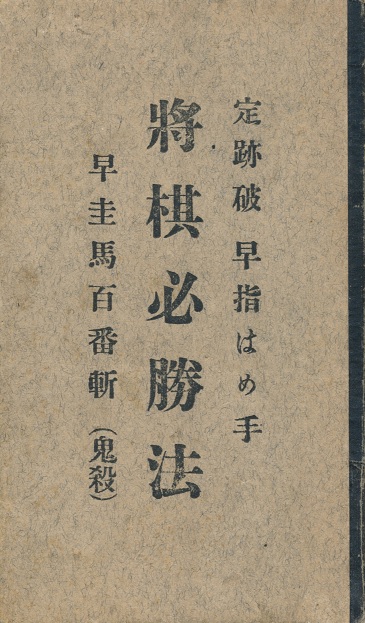 定跡破 早指はめ手
將棋必勝法
早圭馬百番斬（鬼殺）